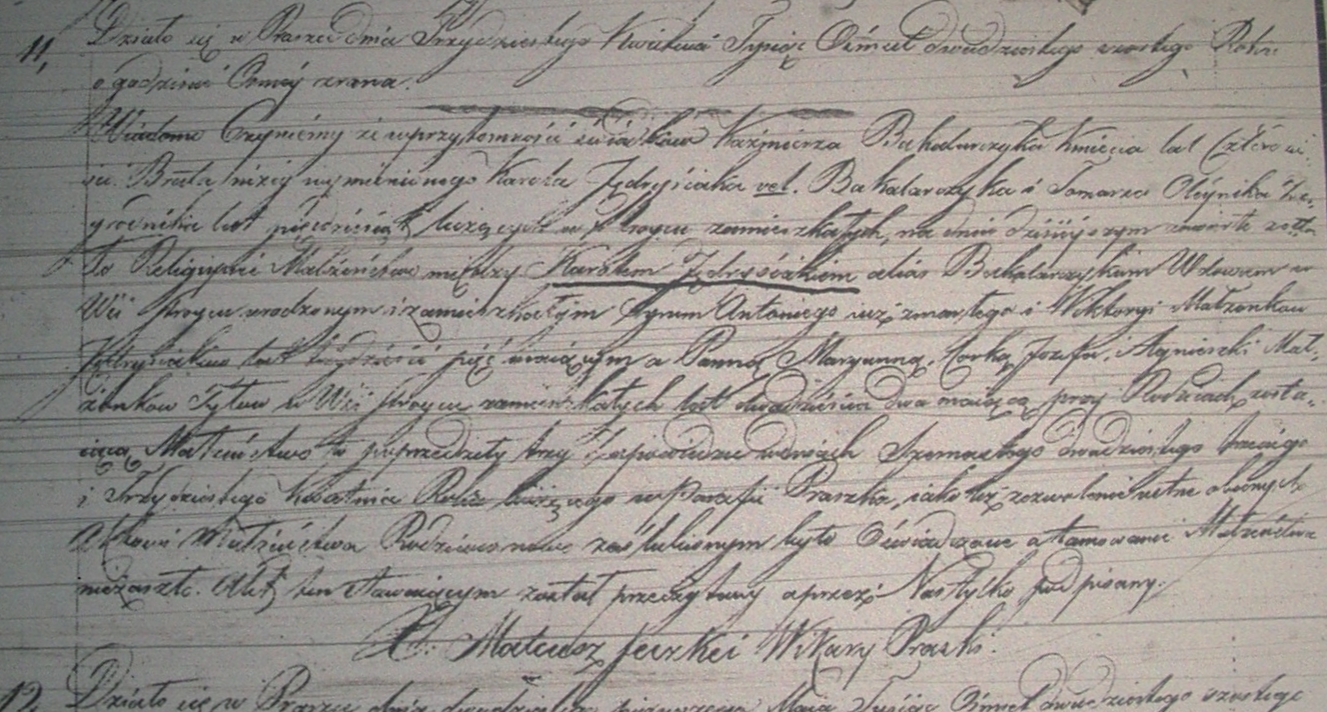 11, Działo się w Praszce dnia Trzydziestego Kwietnia Tysiąc Ośmset dwudziestego szostego Roku
o godzinie Osmey zrana.
Wiadomo Czyniemy że wprzytomności świadków Kaźmierza Bakalarczyka Kmiecia lat Czterdzie-
ści. Brata niżey wymienionego Karola Jędryściaka vel. Bakalarczyka i Tomasza Oleynika Za-
grodnika lat pięćdziesiąt liczących w zamieszkałych, na dniu dzisiyszym zawarte zosta-
ło Religijnie Małżeństwo między Karolem Jędryściakiem alias Bakalarczykiem Wdowcem w
Wsi urodzonym i zamieszkałym Synem Antoniego iuż zmarłego i Wiktoryi Małżonków
Jędrysiaków lat pięć maiącym a Panną Maryanną, Corką Jozefa, i Agnieszki Mał-
żonków w Wsi zamieszkałych lat dwadzieścia dwa maiącą przy Rodzicach zosta-
iącą Małżeństwo to poprzedziły trzy Zapowiedzie w dniach Szesnastego dwudziestego trzeciego
i Trzydziestego Kwietnia Roku bieżącego w Parafii Praszka, iako też zezwolenie ustne obecnych
Aktowi Małżeństwa Rodziców nowo zaślubionym było Oświadczone a tamowanie Małżeństwa
niezaszło. Akt ten Stawaiącym został przeczytany a przez Nas tylko podpisany.
X. Mateusz Wikary Praszki.
12, Działo się w Praszce dnia dwudziestego pierwszego Maia Tysiąc Ośmset dwudziestego szostego